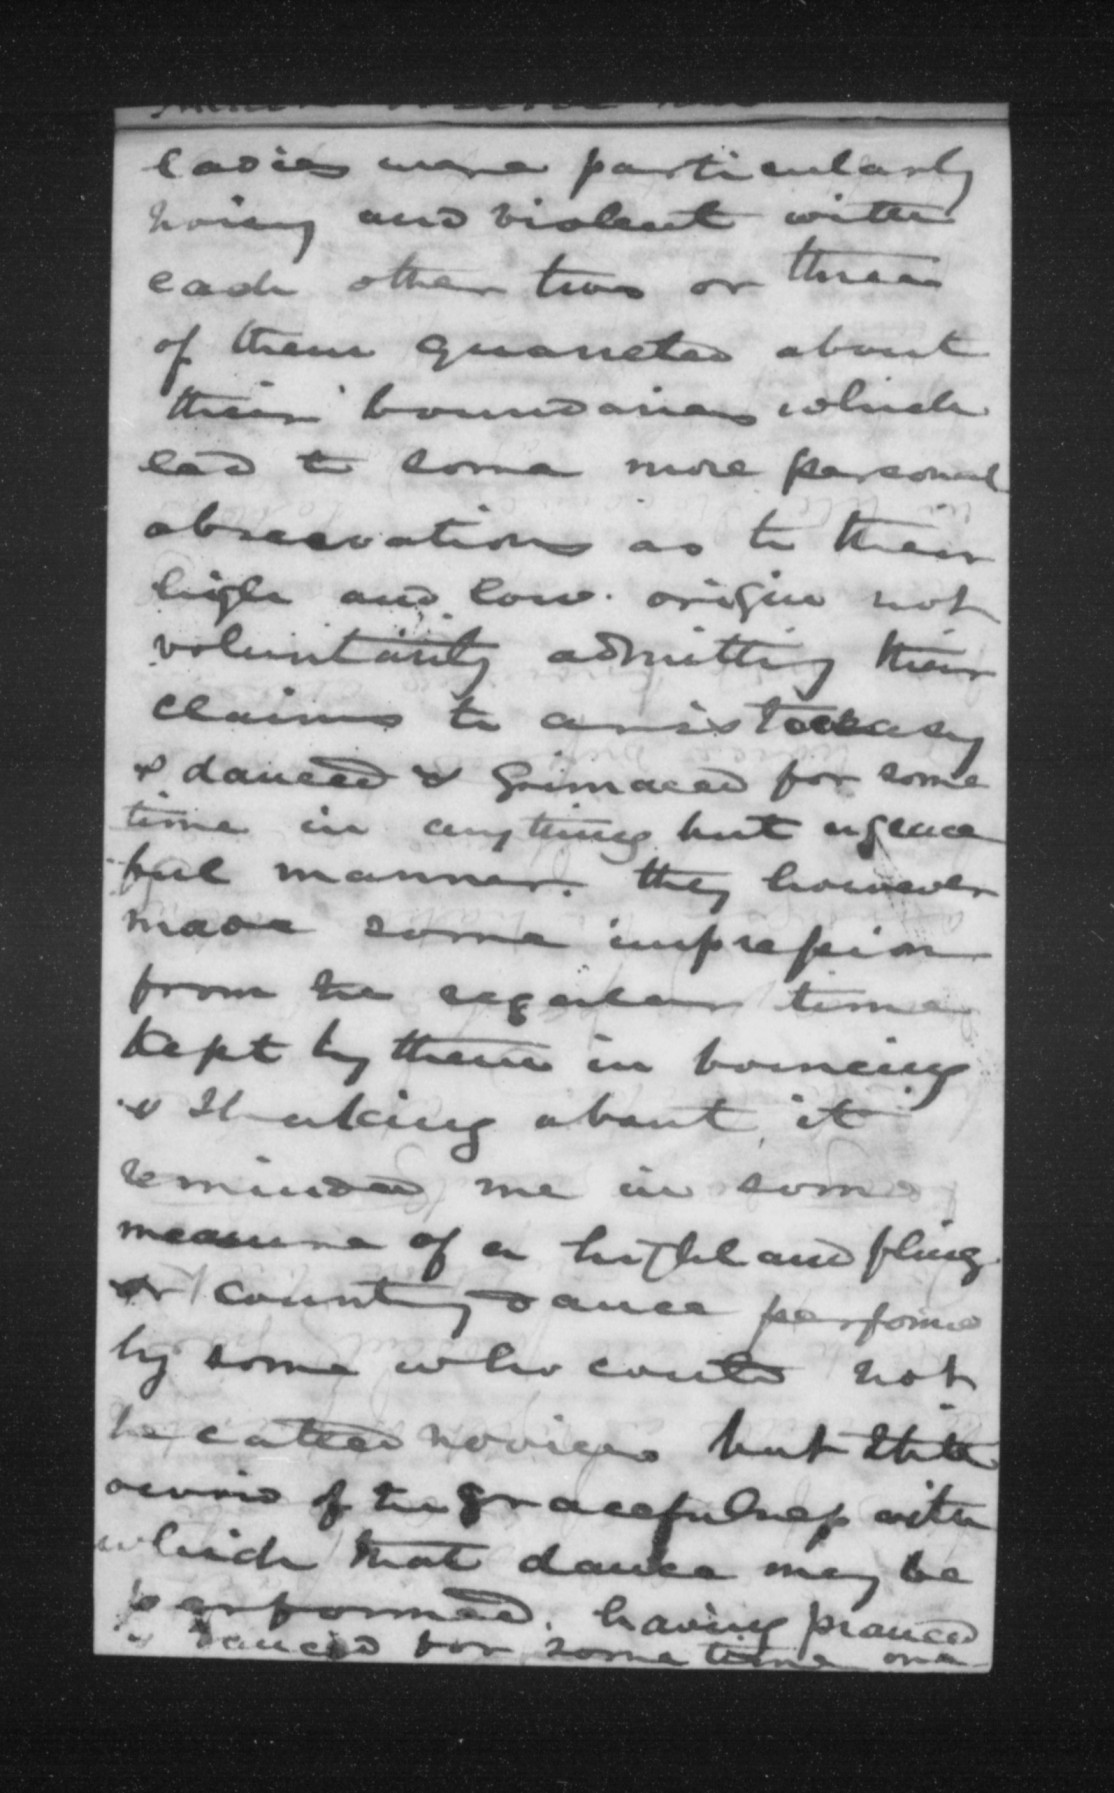 ladies were particularly
noisy and violent with
each other two or three
of them quarreled about
their boundaries which
led to some more personal
observations as to their
high and low origin not
voluntarily admitting their
claims to aristocracy
& danced & grimaced for some
time in anything but ungrace
ful manner. they however
made some impression
from the regular time
kept by them in bouncing
& shaking about it
reminded me in some
measure of a highland fling
or country dance performed
by some who could not
be called novices but still
of the gracefulness with
which that dance may be
performed. having pranced
& danced for some time one